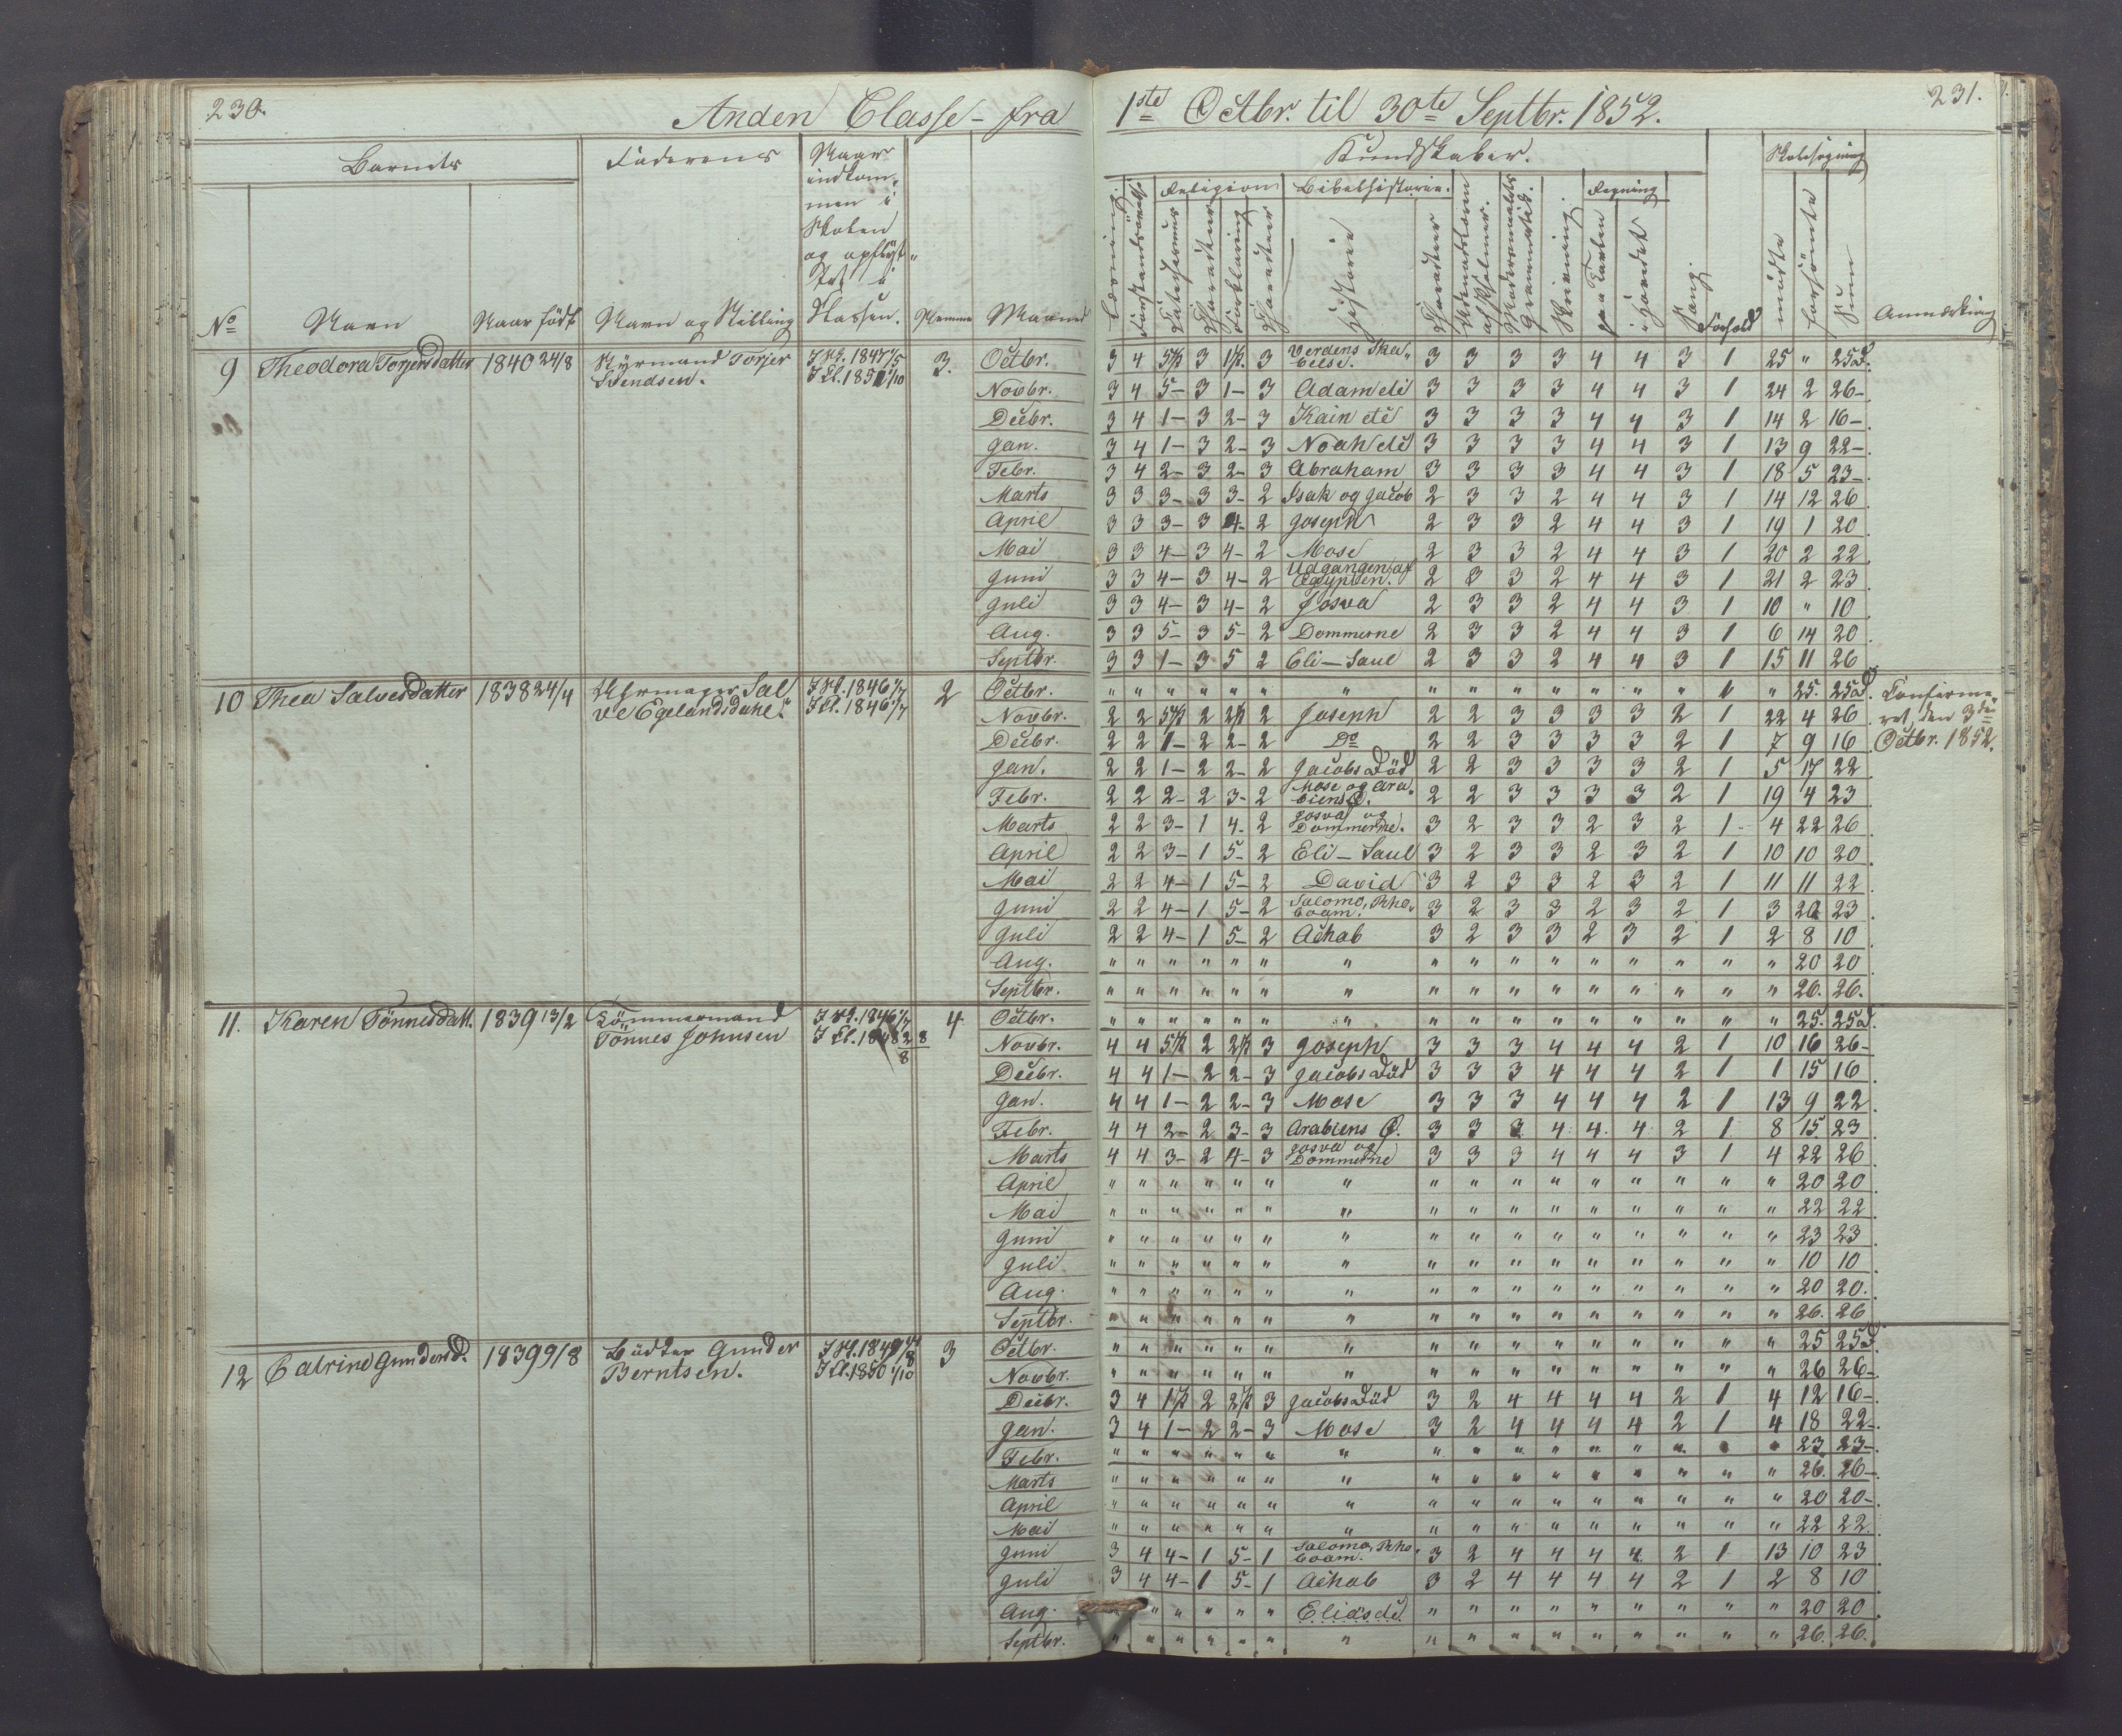 230.
231.
Anden Classe - fra 1ste Octbr. til 30te Septbr. 1852.
Barnets
Faderens
Naar indkommen i Skolen og opflyttet i Klassen.
Kundskaber.
Skolesøgning
Religion
Bibelhistorie.
Regning
No
Navn
Naar født
Navn og Stilling
Nummer
Maaned
Læsning
Forklaring
Charakteer
Historie
Charakteer
Skrivning
paa Tavlen
i Hovedet
Sang.
Forhold
mødte
forsømte
Sum
Anmærkning
9 Theodora Torjersdatter 1840 24/8 Styrmand Torjer Svendsen. 3.
Octbr. 3 4 5 3 1 3 Verdens Skabelse. 3 3 3 3 4 4 3 1 25 " 25 D.
Novbr. 3 4 5- 3 1- 3 Adam etc 3 3 3 3 4 4 3 1 24 2 26-
Decbr. 3 4 1- 3 2- 3 Kain etc 3 3 3 3 4 4 3 1 14 2 16-
Jan. 3 4 1- 3 2- 3 Noah etc 3 3 3 3 4 4 3 1 13 9 22-
Febr. 3 4 2- 3 2- 3 Abraham 3 3 3 3 4 4 3 1 18 5 23-
Marts 3 3 3- 3 3- 2 Isak og Jacob 2 3 3 2 4 4 3 1 14 12 26
April 3 3 3- 3 4- 2 Joseph 2 3 3 2 4 4 3 1 19 1 20
Mai 3 3 4- 3 4- 2 Mose 2 3 3 2 4 4 3 1 20 2 22
Juni 3 3 4- 3 4- 2 Udgangen af Ægypten. 2 3 3 2 4 4 3 1 21 2 23
Juli 3 3 4- 3 4- 2 Josva 2 3 3 2 4 4 3 1 10 " 10
Aug. 3 3 5- 3 5- 2 Dommerne 2 3 3 2 4 4 3 1 6 14 20
Septbr. 3 3 1- 3 5 2 Eli - Saul 2 3 3 2 4 4 3 1 15 11 26
10 Thea Salvesdatter 1838 24/4 Uhrmager Salve Egelandsdahl. I Sk. 1846 1/7 I Cl. 1846 1/7 2
Octbr. " " " " " " " " " " " " " " " " 25. 25 D. Confirmeret, den 3die
Novbr. 2 2 5 2 2 2 Joseph 2 2 3 3 3 3 2 1 22 4 26 Octbr. 1852.
Decbr. 2 2 1- 2 2- 2 Do 2 2 3 3 3 3 2 1 7 9 16
Jan. 2 2 1- 2 2- 2 Jacobs Død 2 2 3 3 3 3 2 1 5 17 22
Febr. 2 2 2- 2 3- 2 Mose og Arabiens Ø. 2 2 3 3 3 3 2 1 19 4 23
Marts 2 2 3- 1 4- 2 Josva og Dommerne. 3 2 3 3 2 3 2 1 4 22 26
April 2 2 3- 1 5- 2 Eli - Saul 3 2 3 3 2 3 2 1 10 10 20
Mai 2 2 4- 1 5- 2 David 3 2 3 3 2 3 2 1 11 11 22
Juni 2 2 4- 1 5- 2 Salomo, Rhoboam. 3 2 3 3 2 3 2 1 3 20 23
Juli 2 2 4- 1 5- 2 Achab 3 2 3 3 2 3 2 1 2 8 10
Aug. " " " " " " " " " " " " " " " " 20 20
Septbr. " " " " " " " " " " " " " " " " 26. 26.
11. Karen Tønnesdatt. 1839 13/2 Tømmermand Tønnes Johnsen I Sk. 1846 1/7 I Cl. 1848 28/8 4
Octbr. " " " " " " " " " " " " " " " " 25. 25 D.
Novbr. 4 4 5 2 2 3 Joseph 3 3 3 4 4 4 2 1 10 16 26-
Decbr. 4 4 1- 2 2- 3 Jacobs Død 3 3 3 4 4 4 2 1 1 15 16
Jan. 4 4 1- 2 2- 3 Mose 3 3 3 4 4 4 2 1 13 9 22
Febr. 4 4 2- 2 3- 3 Arabiens Ø. 3 3 3 4 4 4 2 1 8 15 23
Marts 4 4 3- 2 4- 3 Josva og Dommerne 3 3 3 4 4 4 3 1 4 22 26
April " " " " " " " " " " " " " " " " 20 20
Mai " " " " " " " " " " " " " " " " 22 22
Juni " " " " " " " " " " " " " " " " 23 23
Juli " " " " " " " " " " " " " " " " 10 10
Aug. " " " " " " " " " " " " " " " " 20 20.
Septbr. " " " " " " " " " " " " " " " " 26. 26
12 Catrine Gundersd. 1839 9/8 Bødker Gunder Berntsen. I Cl. 1850 1/10 3
Octbr. " " " " " " " " " " " " " " " " 25 25 D.
Novbr. " " " " " " " " " " " " " " " " 26 26-
Decbr. 3 4 1 2 2 3 Jacobs Død 3 2 4 4 4 4 2 1 4 12 16-
Jan. 3 4 1- 2 2- 3 Mose 3 2 4 4 4 4 2 1 4 18 22-
Febr. " " " " " " " " " " " " " " " " 23 23-
Marts " " " " " " " " " " " " " " " " 26. 26-
April " " " " " " " " " " " " " " " " 20 20-
Mai " " " " " " " " " " " " " " " " 22 22.
Juni 3 4 4- 1 5- 1 Salomo, Rhoboam. 3 2 4 4 4 4 2 1 13 10 23
Juli 3 4 4- 1 5- 1 Achab 3 2 4 4 4 4 2 1 2 8 10
Aug. " " " " " Elias etc " " " " " " " " " 20 20
Septbr. " " " " " " " " " " " " " " " " 26. 26.